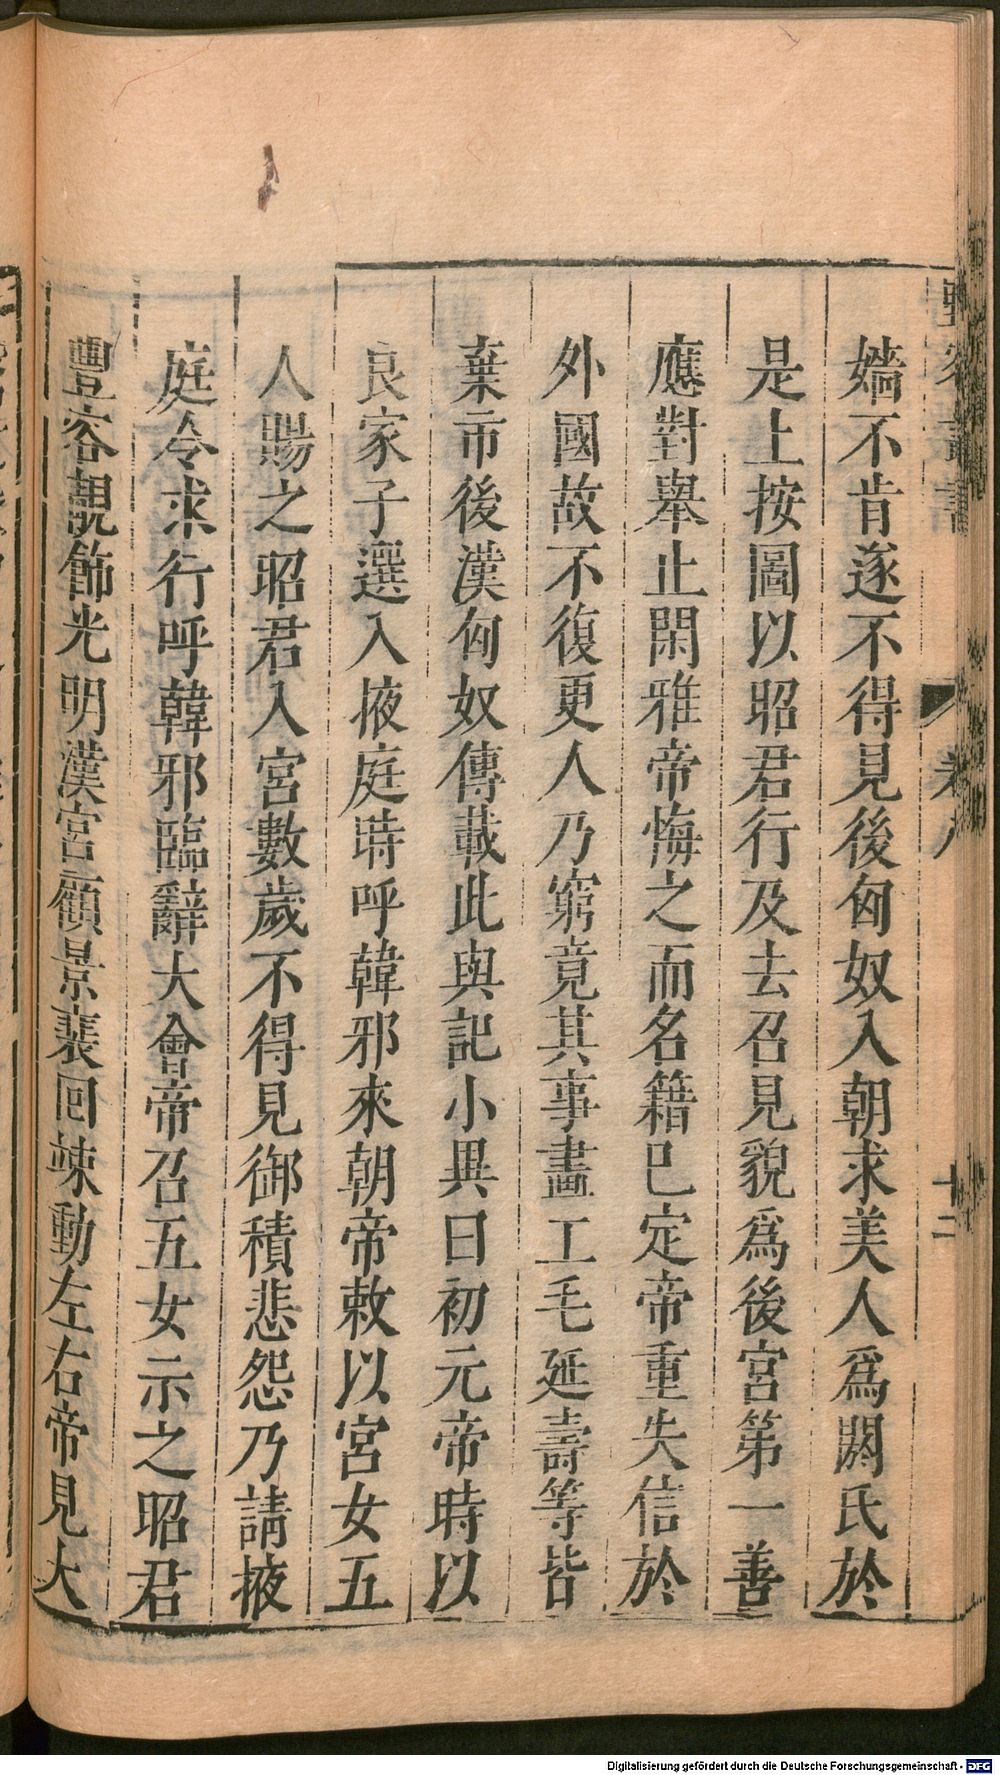 卷八
十二
嬙不肯遂不得見後匈奴入朝求美人爲閼氏於
是上按圖以昭君行及去召見貌爲後宮第一善
應對舉止閑雅帝悔之而名籍已定帝重失信於
外國故不復更人乃窮竟其事畫工毛延壽等皆
棄市後漢匈奴傳載此與記小異曰初元帝時以
良家子選入掖庭時呼韓邪來朝帝敕以宮女五
人賜之昭君入宮數歲不得見御積悲怨乃請掖
庭令求行呼韓邪臨辭大會帝召五女示之昭君
豐容靚飾光明漢宮顧景裴回竦動左右帝見大
Digitalisierung gefördert durch die Deutsche Forschungsgemeinschaft - DFG